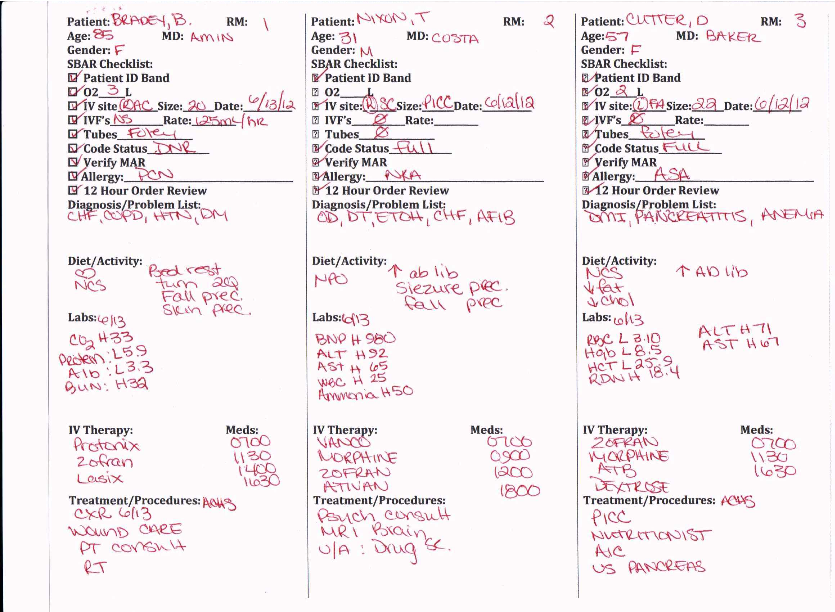 Patient: BRADEY, B. RM: 1
Age: 85 MD: AMIN
Gender: F
SBAR Checklist:
Patient ID Band
O2 3 L
IV site: (R) AC Size: 20 Date: 6/13/12
IVF's NS Rate: 125mL/HR
Tubes Foley
Code Status DNR
Verify MAR
Allergy: PCN
12 Hour Order Review
Diagnosis/Problem List:
CHF, COPD, HTN, DM
Diet/Activity:
NCS
Bed rest
turn 2Q
Fall prec.
Skin prec.
Labs: 6/13
CO2 H33
Protein: L59
Alb: L3.3
BUN: H32
IV Therapy: Meds:
Protonix 0700
Zofran 1130
Lasix 1400
1630
Treatment/Procedures: ACHS
CXR 6/13
WOUND CARE
PT consult
RT
Patient: NIXON, T RM: 2
Age: 31 MD: COSTA
Gender: M
SBAR Checklist:
Patient ID Band
O2 L
IV site: (R) SC Size: PICC Date: 6/12/12
IVF's Ø Rate:
Tubes Ø
Code Status Full
Verify MAR
Allergy: NKA
12 Hour Order Review
Diagnosis/Problem List:
OD, DT, ETOH, CHF, AFIB
Diet/Activity:
NPO ↑ ab lib
Siezure prec.
fall prec
Labs: 6/13
BNP H 980
ALT H92
AST H 65
WBC H 25
Ammonia H50
IV Therapy: Meds:
VANCO 0700
MORPHINE 0900
ZOFRAN 1200
ATIVAN 1800
Treatment/Procedures:
Psych consult
MRI Brain
U/A : Drug Sc.
Patient: CUTTER, D RM: 3
Age: 57 MD: BAKER
Gender: F
SBAR Checklist:
Patient ID Band
O2 2 L
IV site: (L) FA Size: 22 Date: 6/12/12
IVF's Ø Rate:
Tubes Foley
Code Status FULL
Verify MAR
Allergy: ASA
12 Hour Order Review
Diagnosis/Problem List:
DMI, PANCREATITIS, ANEMIA
Diet/Activity:
NCS ↑ AD lib
↓ fat
↓ chol
Labs: 6/13
RBC L 3.10 ALT H 71
Hgb L 8.5 AST H 67
HCT L 25.9
RDW H 18.4
IV Therapy: Meds:
ZOFRAN 0700
MORPHINE 1130
ATB 1630
DEXTROSE
Treatment/Procedures: ACHS
PICC
NUTRITIONIST
A1C
US PANCREAS